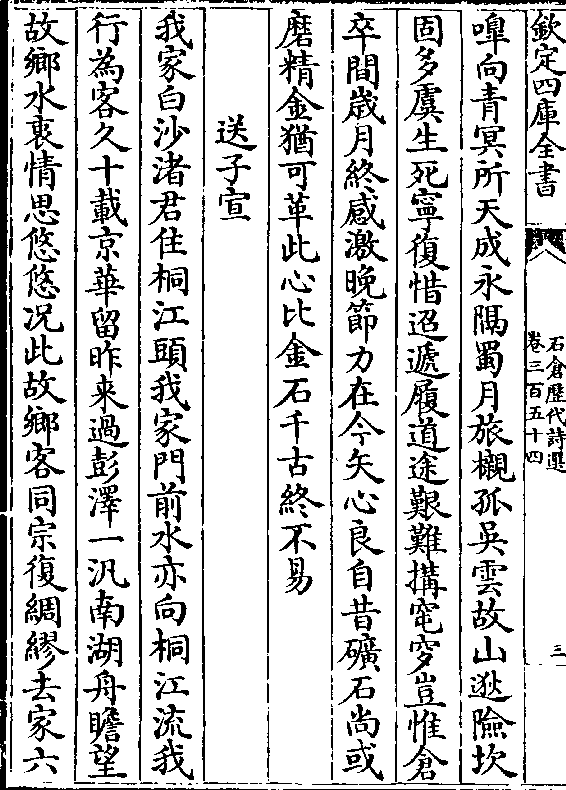 欽定四庫全書
石倉歴代詩選
卷三百五十四
三
嘷向青冥所天成永隔蜀月旅櫬孤吳雲故山逖險坎
固多虞生死寧復惜迢遞履道途艱難搆窀穸豈惟倉
卒間歲月終感激晚節力在今矢心良自昔礦石尚或
磨精金猶可革此心比金石千古終不易
送子宣
我家白沙渚君住桐江頭我家門前水亦向桐江流我
行為客久十載京華留昨来過彭澤一汎南湖舟瞻望
故鄉水衷情思悠悠况此故鄉客同宗復綢繆去家六